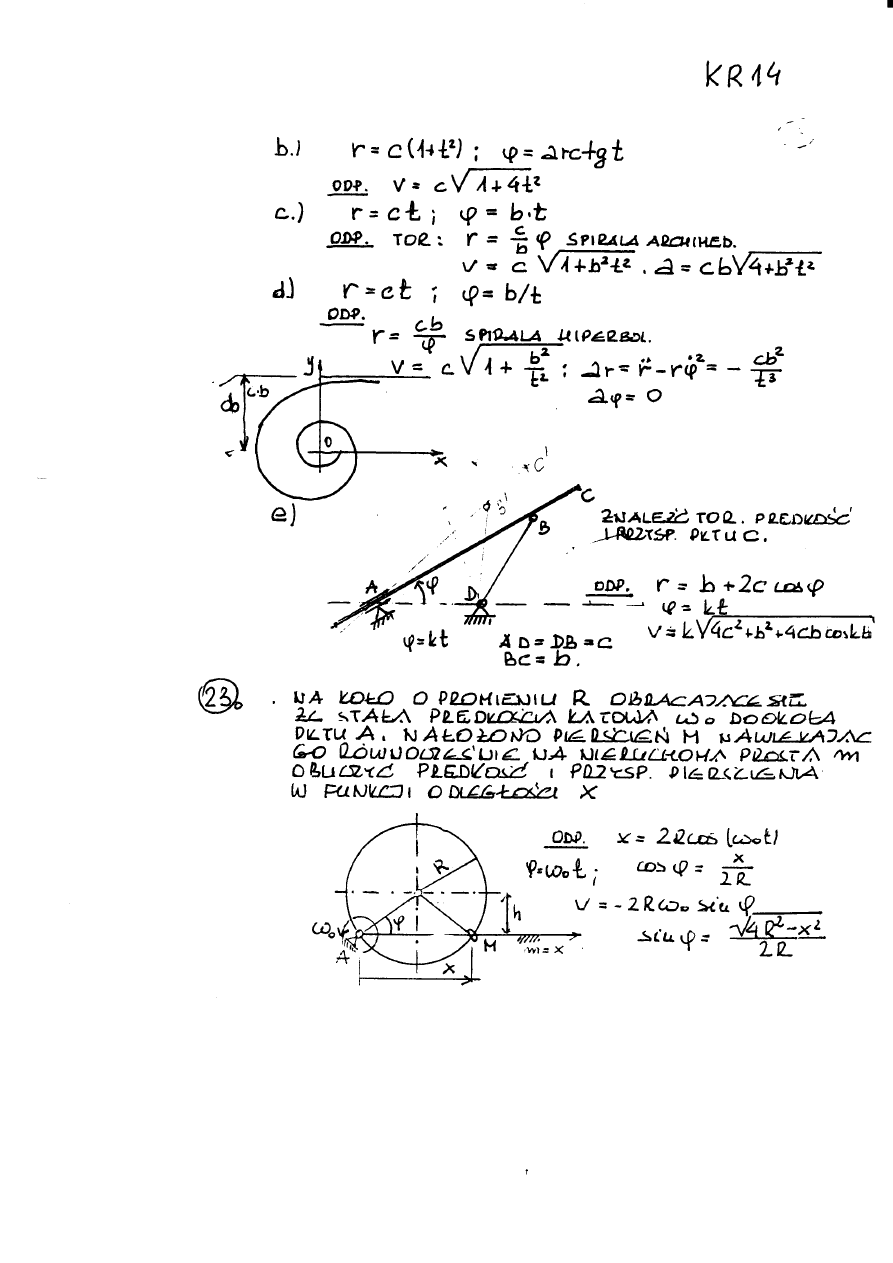 KR14
b.) r = c(1+t²) ; φ = arctg t
ODP. V = c√(1+4t²)
c.) r = ct ; φ = b·t
ODP. TOR: r = c/b φ SPIRALA ARCHIMED.
V = c √(1+b²t²) . a = cb√(4+b²t²)
d) r = ct ; φ = b/t
ODP.
r = cb/φ SPIRALA HIPERBOL.
V = c√(1 + b²/t²) ; ar = r̈ - rφ̇² = - cb²/t³
aφ = 0
y
c.b
db
O
x
e)
C'
B'
C
B
A
φ
D
φ = kt
AD = DB = c
BC = b.
ZNALEŹĆ TOR. PRĘDKOŚĆ
I PRZYSP. PKTU C.
ODP. r = b + 2c cosφ
φ = kt
V = k√(4c²+b²+4cb cos kt)
23. NA KOŁO O PROMIENIU R OBRACAJĄCE SIĘ
ZE STAŁĄ PRĘDKOŚCIĄ KĄTOWĄ ω₀ DOOKOŁA
PKTU A. NAŁOŻONO PIERŚCIEŃ M NAWLEKAJĄC
GO RÓWNOCZEŚNIE NA NIERUCHOMĄ PROSTĄ m
OBLICZYĆ PRĘDKOŚĆ I PRZYSP. PIERŚCIENIA
W FUNKCJI ODLEGŁOŚCI X
R
h
φ
ω₀
A
M
m = x
X
ODP. x = 2Rcos (ω₀t)
φ=ω₀t ; cos φ = x/2R
V = -2Rω₀ sin φ
sin φ = √(4R²-x²)/2R